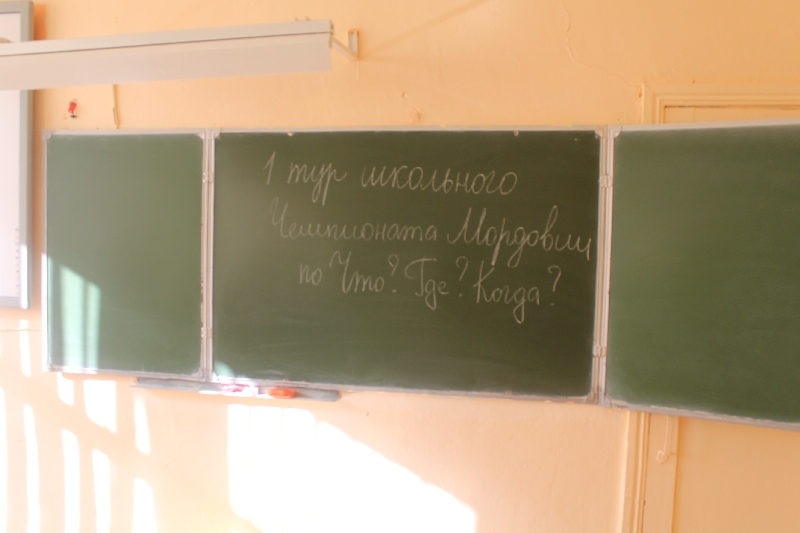 1 тур школьного
Чемпионата Мордовии
по Что? Где? Когда?